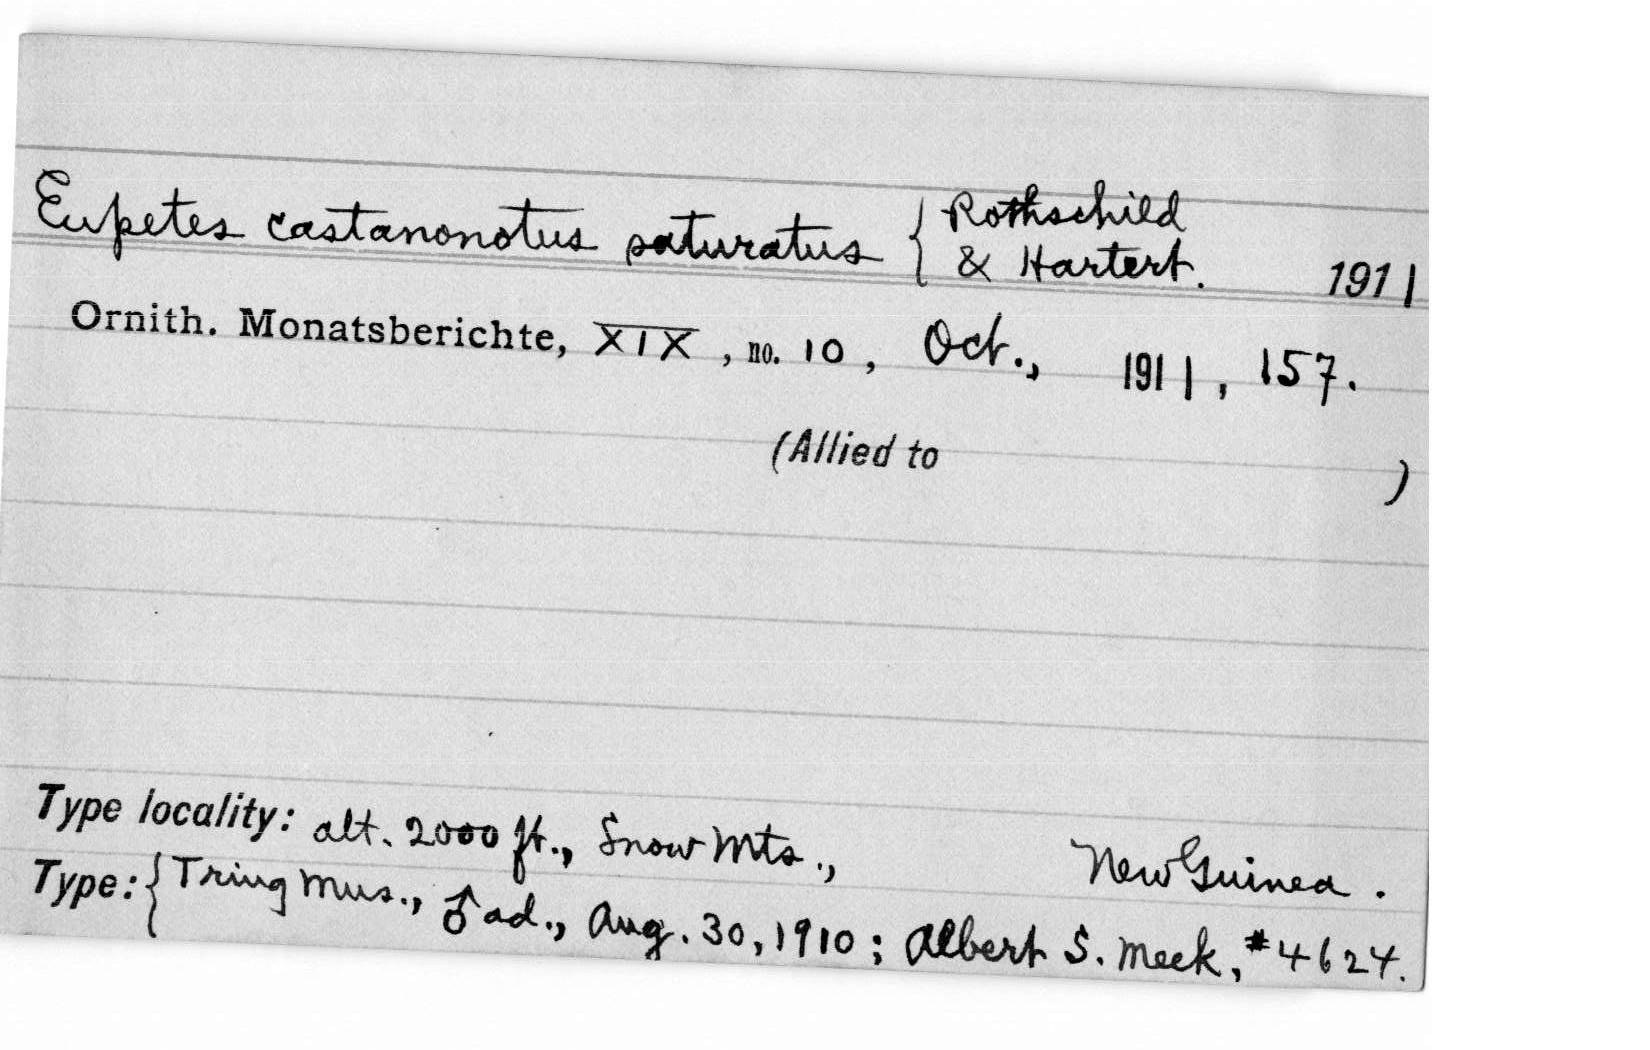 Eupetes castanonotus saturatus { Rothschild
& Hartert. 1911
Ornith. Monatsberichte, XIX, no. 10, Oct., 1911, 157.
(Allied to )
Type locality: alt. 2000 ft., Snow Mts., New Guinea.
Type: { Tring Mus., ♂ ad., Aug. 30, 1910; Albert S. Meek, #4624.